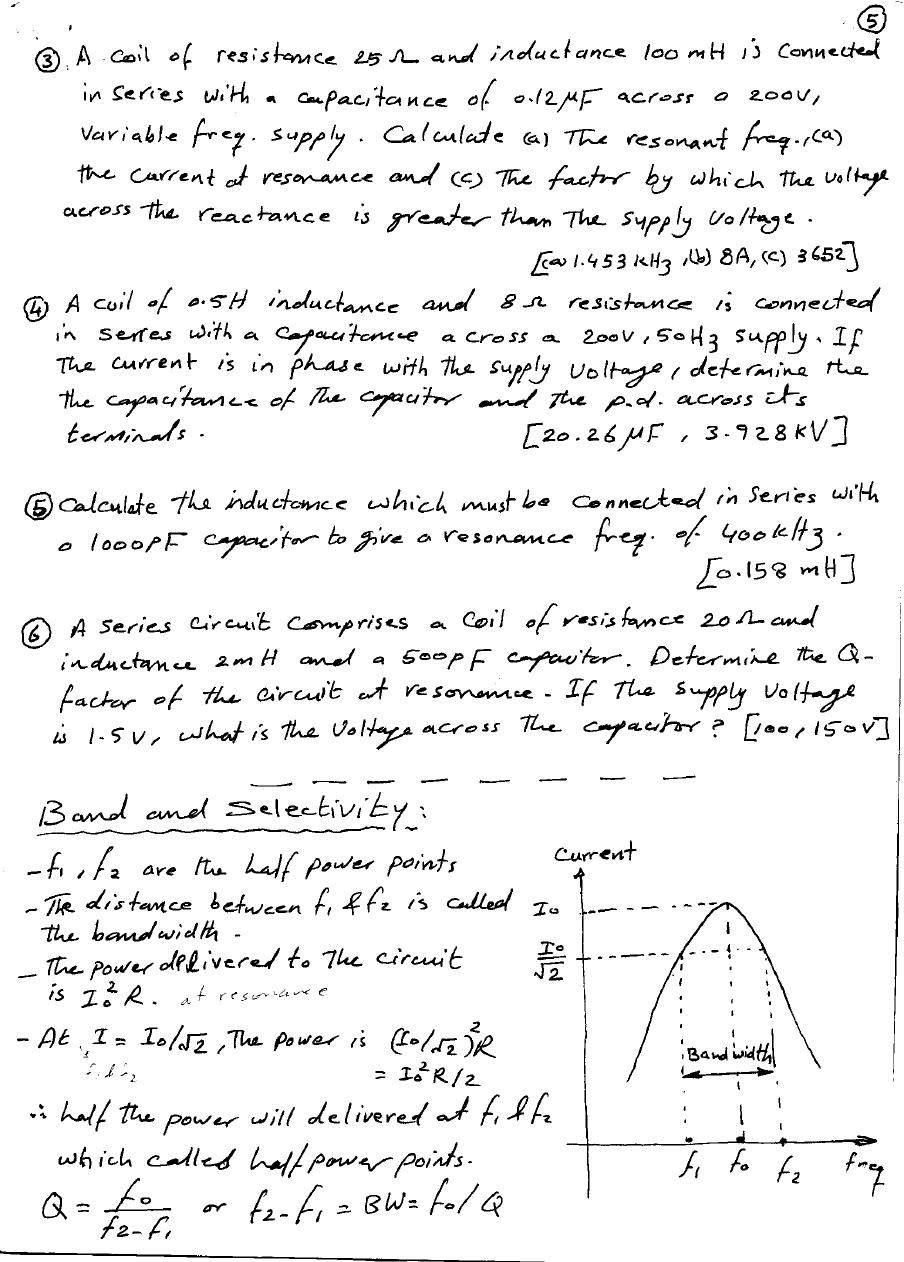 5
③ A coil of resistance 25 Ω and inductance 100 mH is connected
in series with a capacitance of 0.12 μF across a 200V,
Variable freq. supply. Calculate (a) The resonant freq., (a)
the current at resonance and (c) The factor by which the voltage
across the reactance is greater than The supply voltage.
[(a) 1.453 kHz, (b) 8A, (c) 3652]
④ A coil of 0.5H inductance and 8 Ω resistance is connected
in series with a capacitance across a 200V, 50Hz supply. If
The current is in phase with the supply voltage, determine the
the capacitance of the capacitor and the p.d. across its
terminals. [20.26 μF, 3.928 kV]
⑤ Calculate the inductance which must be connected in series with
a 1000pF capacitor to give a resonance freq. of 400kHz.
[0.158 mH]
⑥ A series circuit comprises a coil of resistance 20Ω and
inductance 2mH and a 500pF capacitor. Determine the Q-
factor of the circuit at resonance. If the supply voltage
is 1.5 V, what is the voltage across the capacitor? [100, 150V]
Band and Selectivity:
- f1, f2 are the half power points
- The distance between f1 & f2 is called
the bandwidth.
- The power delivered to The circuit
is I0²R. at resonance
- At I = I0/√2, The power is (I0/√2)²R
f1 & f2
= I0²R/2
∴ half the power will delivered at f1 & f2
which called half power points.
Q = f0/(f2-f1) or f2-f1 = BW = f0/Q
Current
I0
I0/√2
Bandwidth
f1 f0 f2 freq